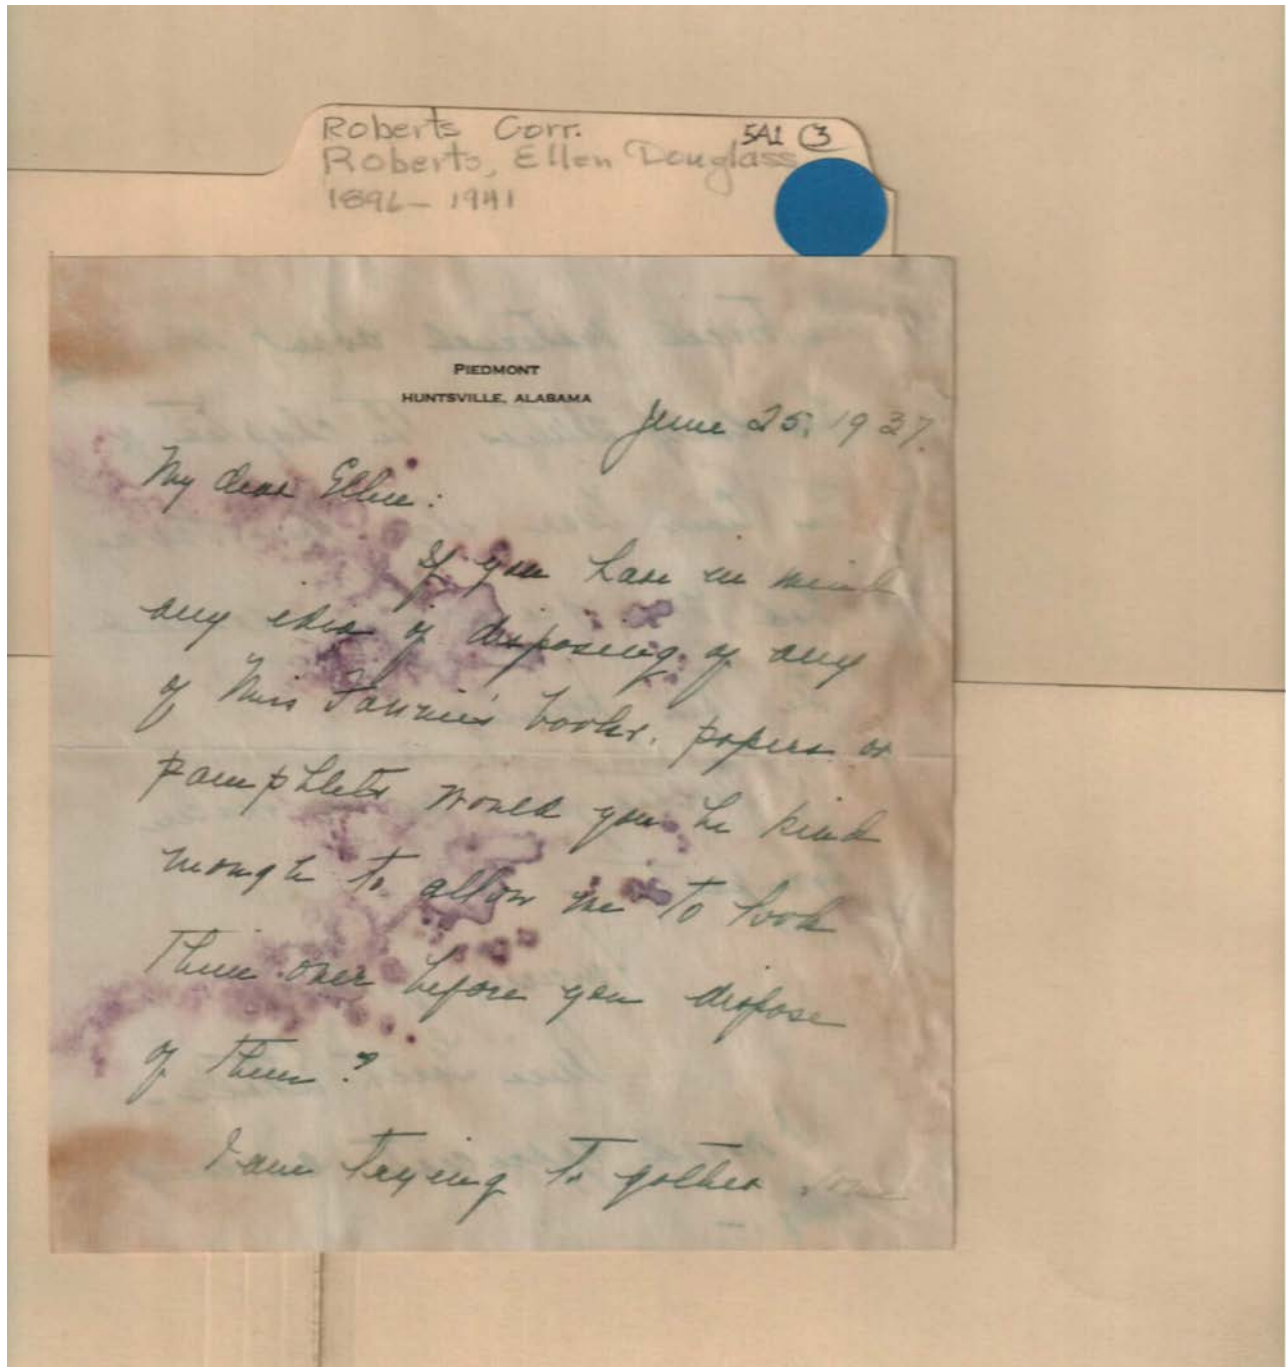 Roberts Corr. 5A1 3
Roberts, Ellen Douglass
1896 - 1941
PIEDMONT
HUNTSVILLE, ALABAMA
June 25, 1937.
My dear Ellen:
If you have in mind
any idea of disposing of any
of Miss Fannie's books, papers or
pamphlets would you be kind
enough to allow me to look
them over before you dispose
of them?
I am trying to gather some